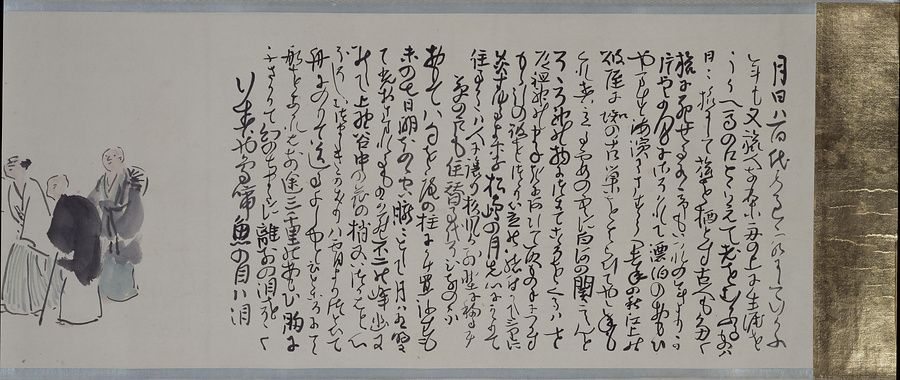 月日ハ百代の過客にして行かふ
年も又旅人也舟の上に生涯を
うかへ馬の口とらえて老をむかふる物ハ
日々旅にして旅を栖とす古人も多く
旅に死せるあり予もいつれの年よりか
片雲の風にさそハれて漂泊のおもひ
やます海濱にさすらへ去年の秋江上の
破屋に蜘の古巣をはらひてやゝ年も
くれ春立る霞の空に白河の関こえんと
そゝろ神の物につきて心をくるハせ
道祖神のまねきにあひて取もの手につかす
もゝ引の破をつゝり笠の緒付かえて三里に
灸すゆるより松嶋の月先心にかゝりて
住る方ハ人に譲り杉風か別墅に移るに
草の戸も住替る代そひなの家
面八句を庵の柱に懸置弥生も
末の七日明ほのゝ空朧々として月ハ在明
にて光おさまれるものから不二の峰幽に
みえて上野谷中の花の梢又いつかハと心
ほそしむつましきかきりハ宵よりつとひて
舟にのりて送る千しゆといふ所にて
船をあかれハ前途三千里のおもひ胸に
ふさかりて幻のちまたに離別の泪をそゝく
行春や鳥啼魚の目ハ泪